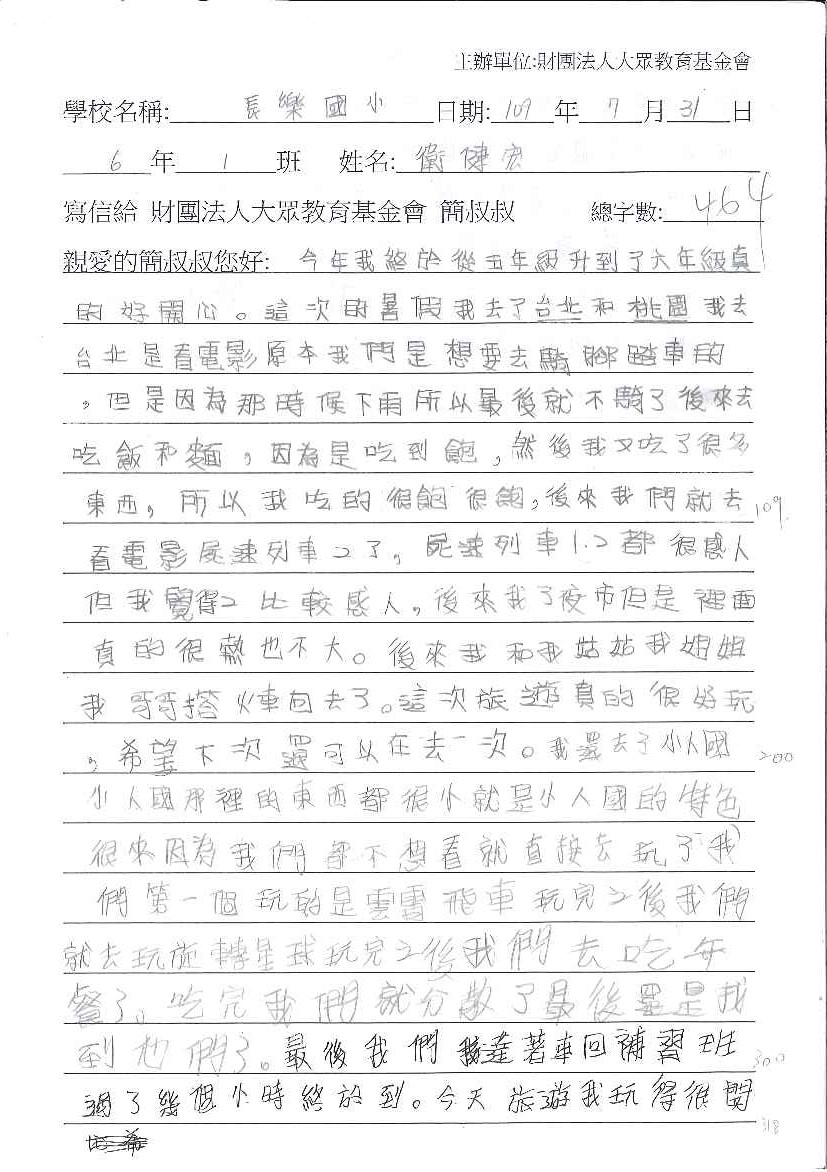 主辦單位:財團法人大眾教育基金會
學校名稱: 長樂國小 日期: 109 年 7 月 31 日
6 年 1 班 姓名: 衛健宏
寫信給 財團法人大眾教育基金會 簡叔叔 總字數: 464
親愛的簡叔叔您好: 今年我終於從五年級升到了六年級真
的好開心。這次的暑假我去了台北和桃園我去
台北是看電影原本我們是想要去騎腳踏車的
,但是因為那時候下雨所以最後就不騎了後來去
吃飯和麵,因為是吃到飽,然後我又吃了很多
東西,所以我吃的很飽很飽,後來我們就去 109
看電影屍速列車2了,屍速列車1.2都很感人
但我覺得2比較感人。後來我了夜市但是裡面
真的很熱也不大。後來我和我姑姑我姐姐
我哥哥搭火車回去了。這次旅遊真的很好玩
,希望下次還可以在去一次。我還去了小人國 200
小人國那裡的東西都很小就是小人國的特色
很來因為我們都不想看就直接去玩了我
們第一個玩的是雲霄飛車玩完之後我們
就去玩旋轉星球玩完之後我們去吃午
餐了。吃完我們就分散了最後還是找
到他們了。最後我們達著車回補習班 300
過了幾個小時終於到。今天旅遊我玩得很開 318